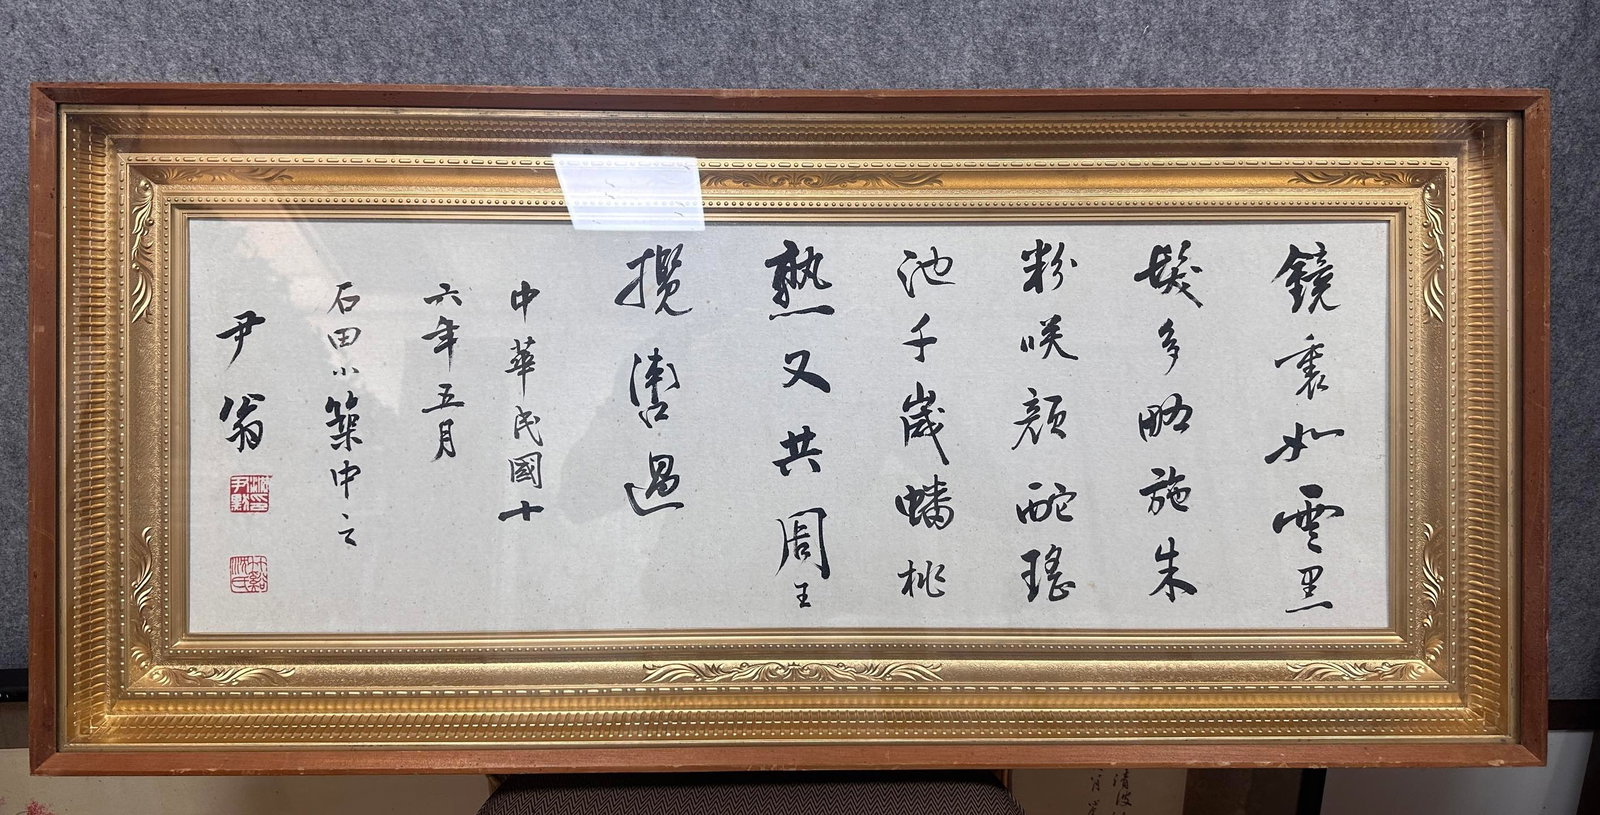 鏡裏如雲黑
髮多略施朱
粉咲顔酡瑤
池千歲蟠桃
熟又共周王
攬轡過
中華民國十
六年五月
石田小築中之
尹翁
尹默
竹谿
沈氏
清波